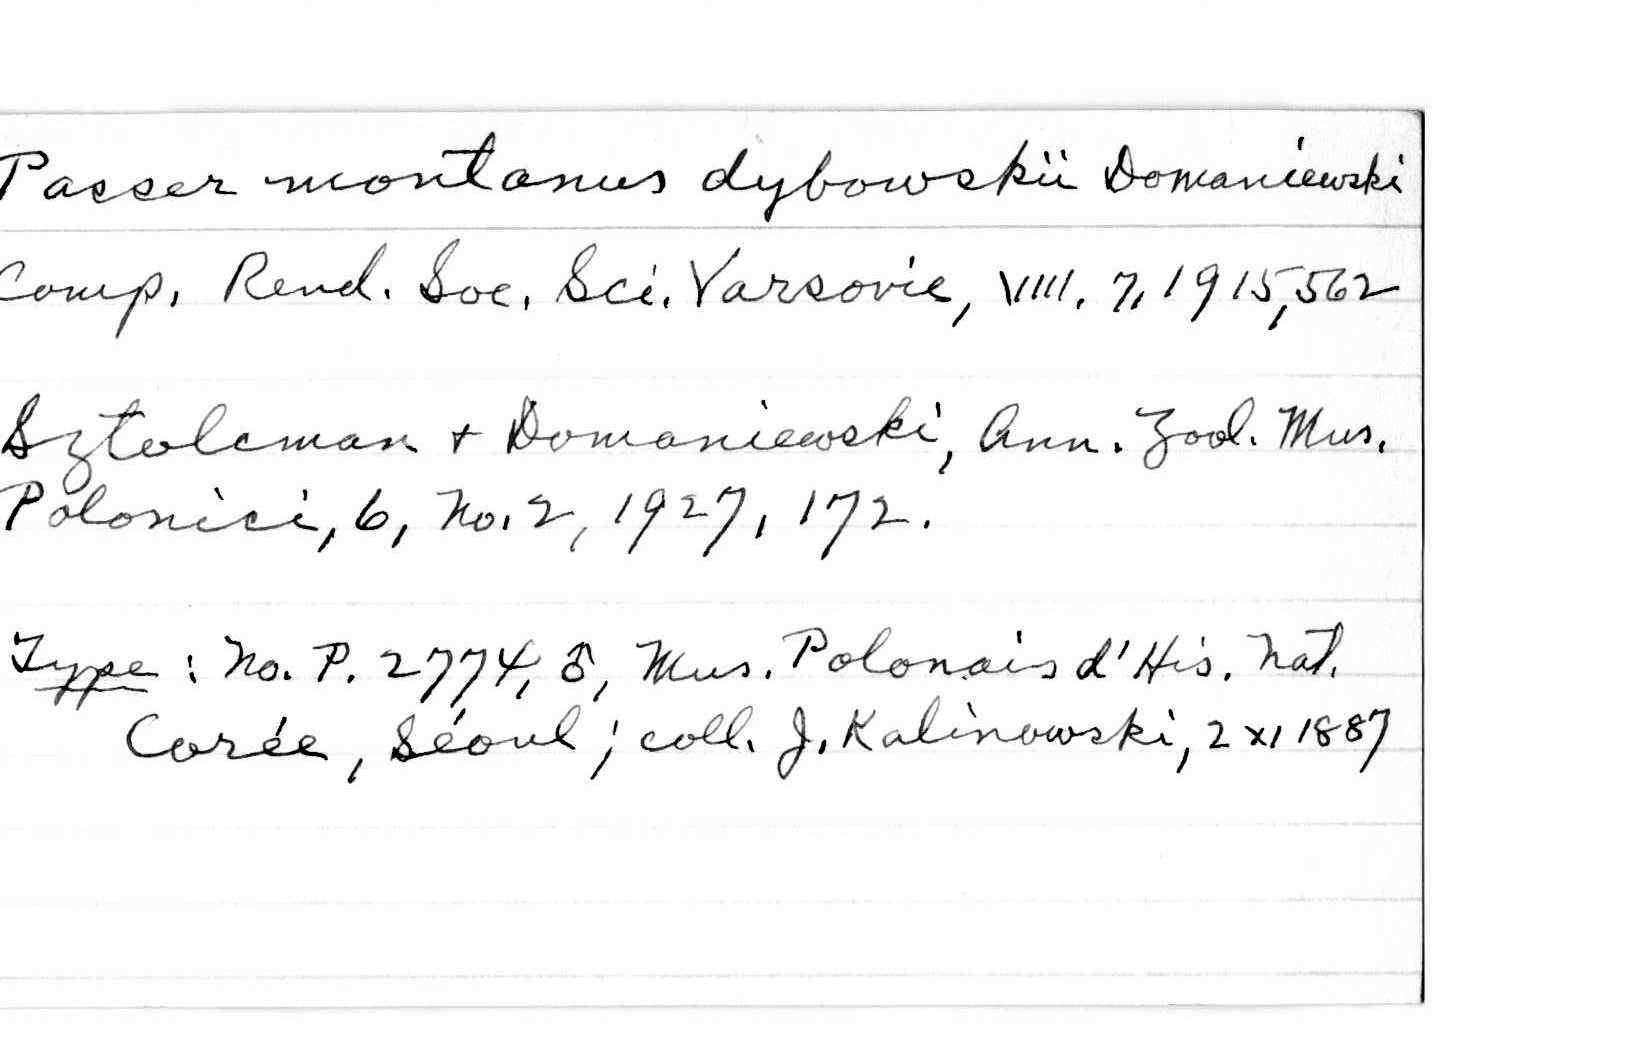 Passer montanus dybowskii Domaniewski
Comp. Rend. Soc. Sci. Varsovie, VIII. 7, 1915, 562
Sztolcman + Domaniewski, Ann. Zool. Mus.
Polonici, 6, No. 2, 1927, 172.
Type: No. P. 2774, ♂, Mus. Polonais d'His. Nat.
Corée, Séoul; coll. J. Kalinowski, 2 XI 1887